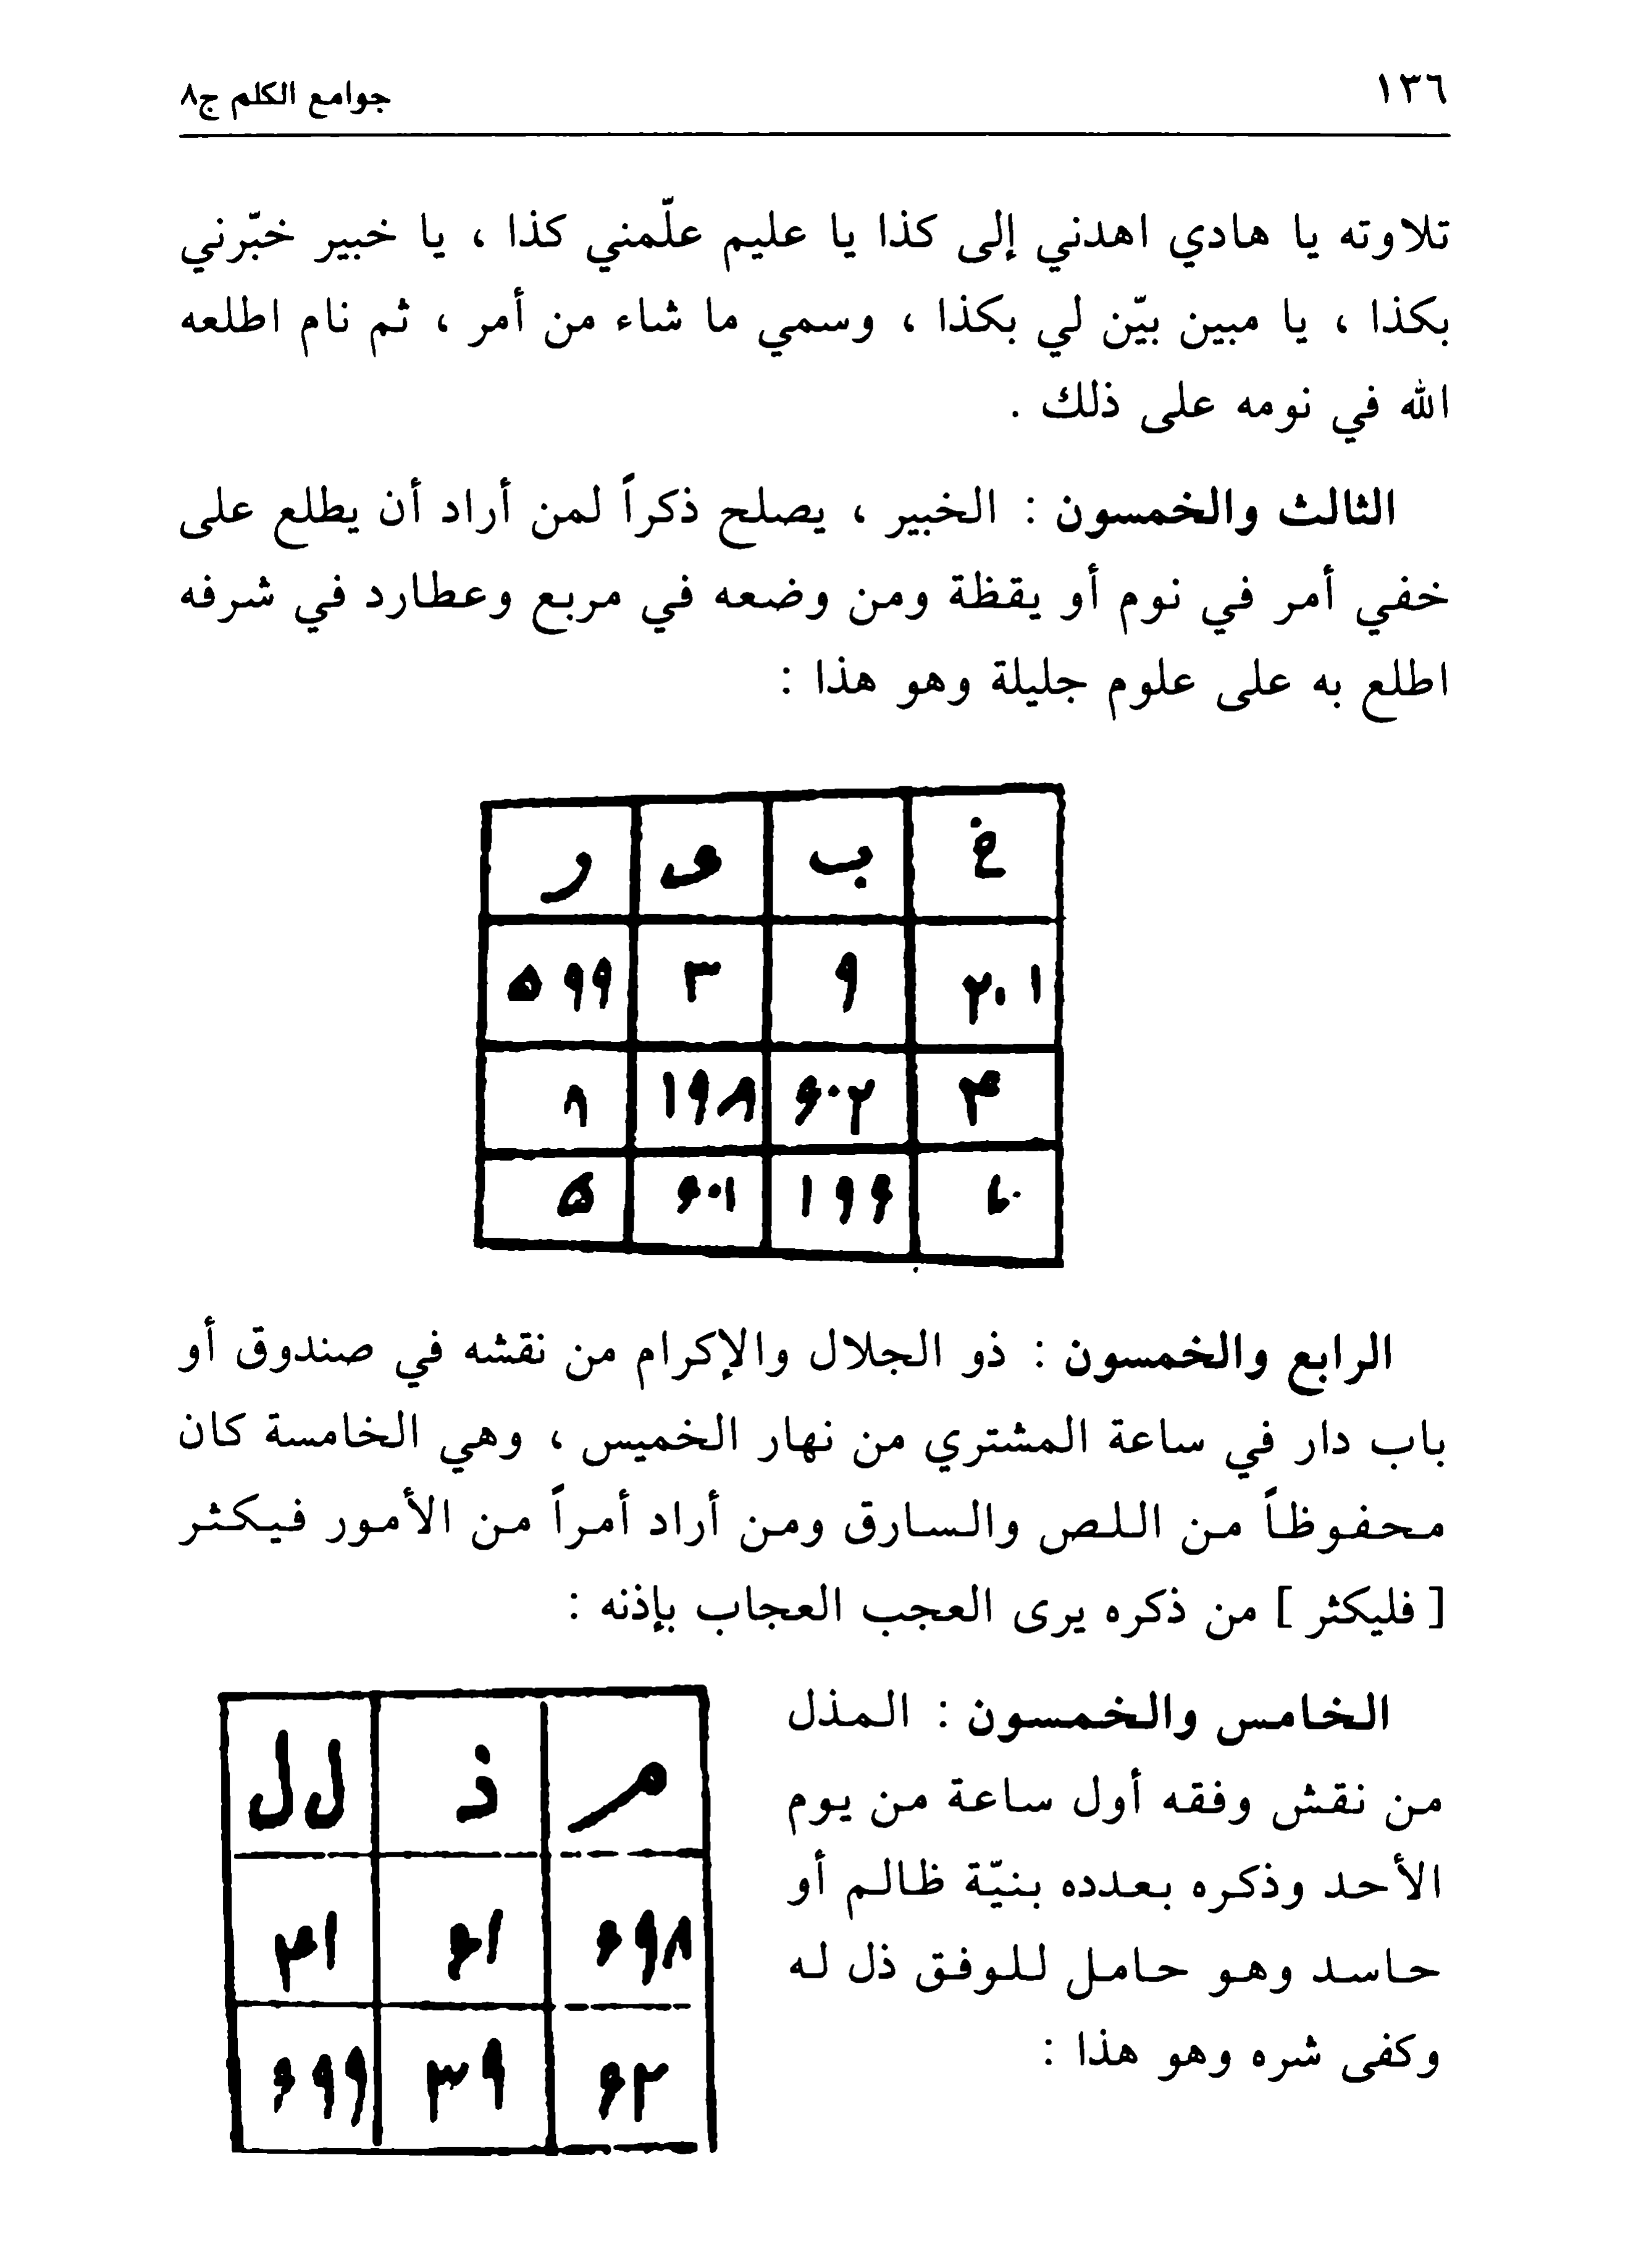 ١٣٦ جوامع الكلم ج٨
تلاوته يا هادي اهدني إلى كذا يا عليم علّمني كذا ، يا خبير خبّرني
بكذا ، يا مبين بيّن لي بكذا ، وسمي ما شاء من أمر ، ثم نام اطلعه
الله في نومه على ذلك .
الثالث والخمسون : الخبير ، يصلح ذكراً لمن أراد أن يطلع على
خفي أمر في نوم أو يقظة ومن وضعه في مربع وعطارد في شرفه
اطلع به على علوم جليلة وهو هذا :
خ ب ى ر
٢٠١ ٩ ٣ ٥٩٩
۴ ۶٠٢ ١٩٨ ٨
١٩٩ ۶٠١ ٥
الرابع والخمسون : ذو الجلال والإكرام من نقشه في صندوق أو
باب دار في ساعة المشتري من نهار الخميس ، وهي الخامسة كان
محفوظاً من اللص والسارق ومن أراد أمراً من الأمور فيكثر
[ فليكثر ] من ذكره يرى العجب العجاب بإذنه :
الخامس والخمسون : المذل
من نقش وفقه أول ساعة من يوم
الأحد وذكره بعدده بنيّة ظالم أو
حاسد وهو حامل للوفق ذل له
وكفى شره وهو هذا :
م ذ ل ل
۶٩٨ ۶١ ۴١
۶٢ ٣٩ ۶٩٩